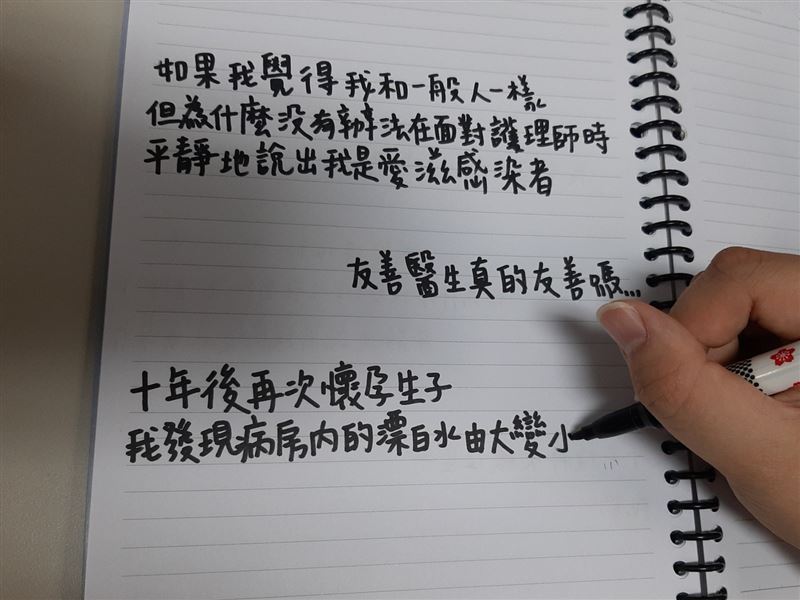 如果我覺得我和一般人一樣
但為什麼沒有辦法在面對護理師時
平靜地說出我是愛滋感染者
友善醫生真的友善嗎...
十年後再次懷孕生子
我發現病房內的漂白水由大變小